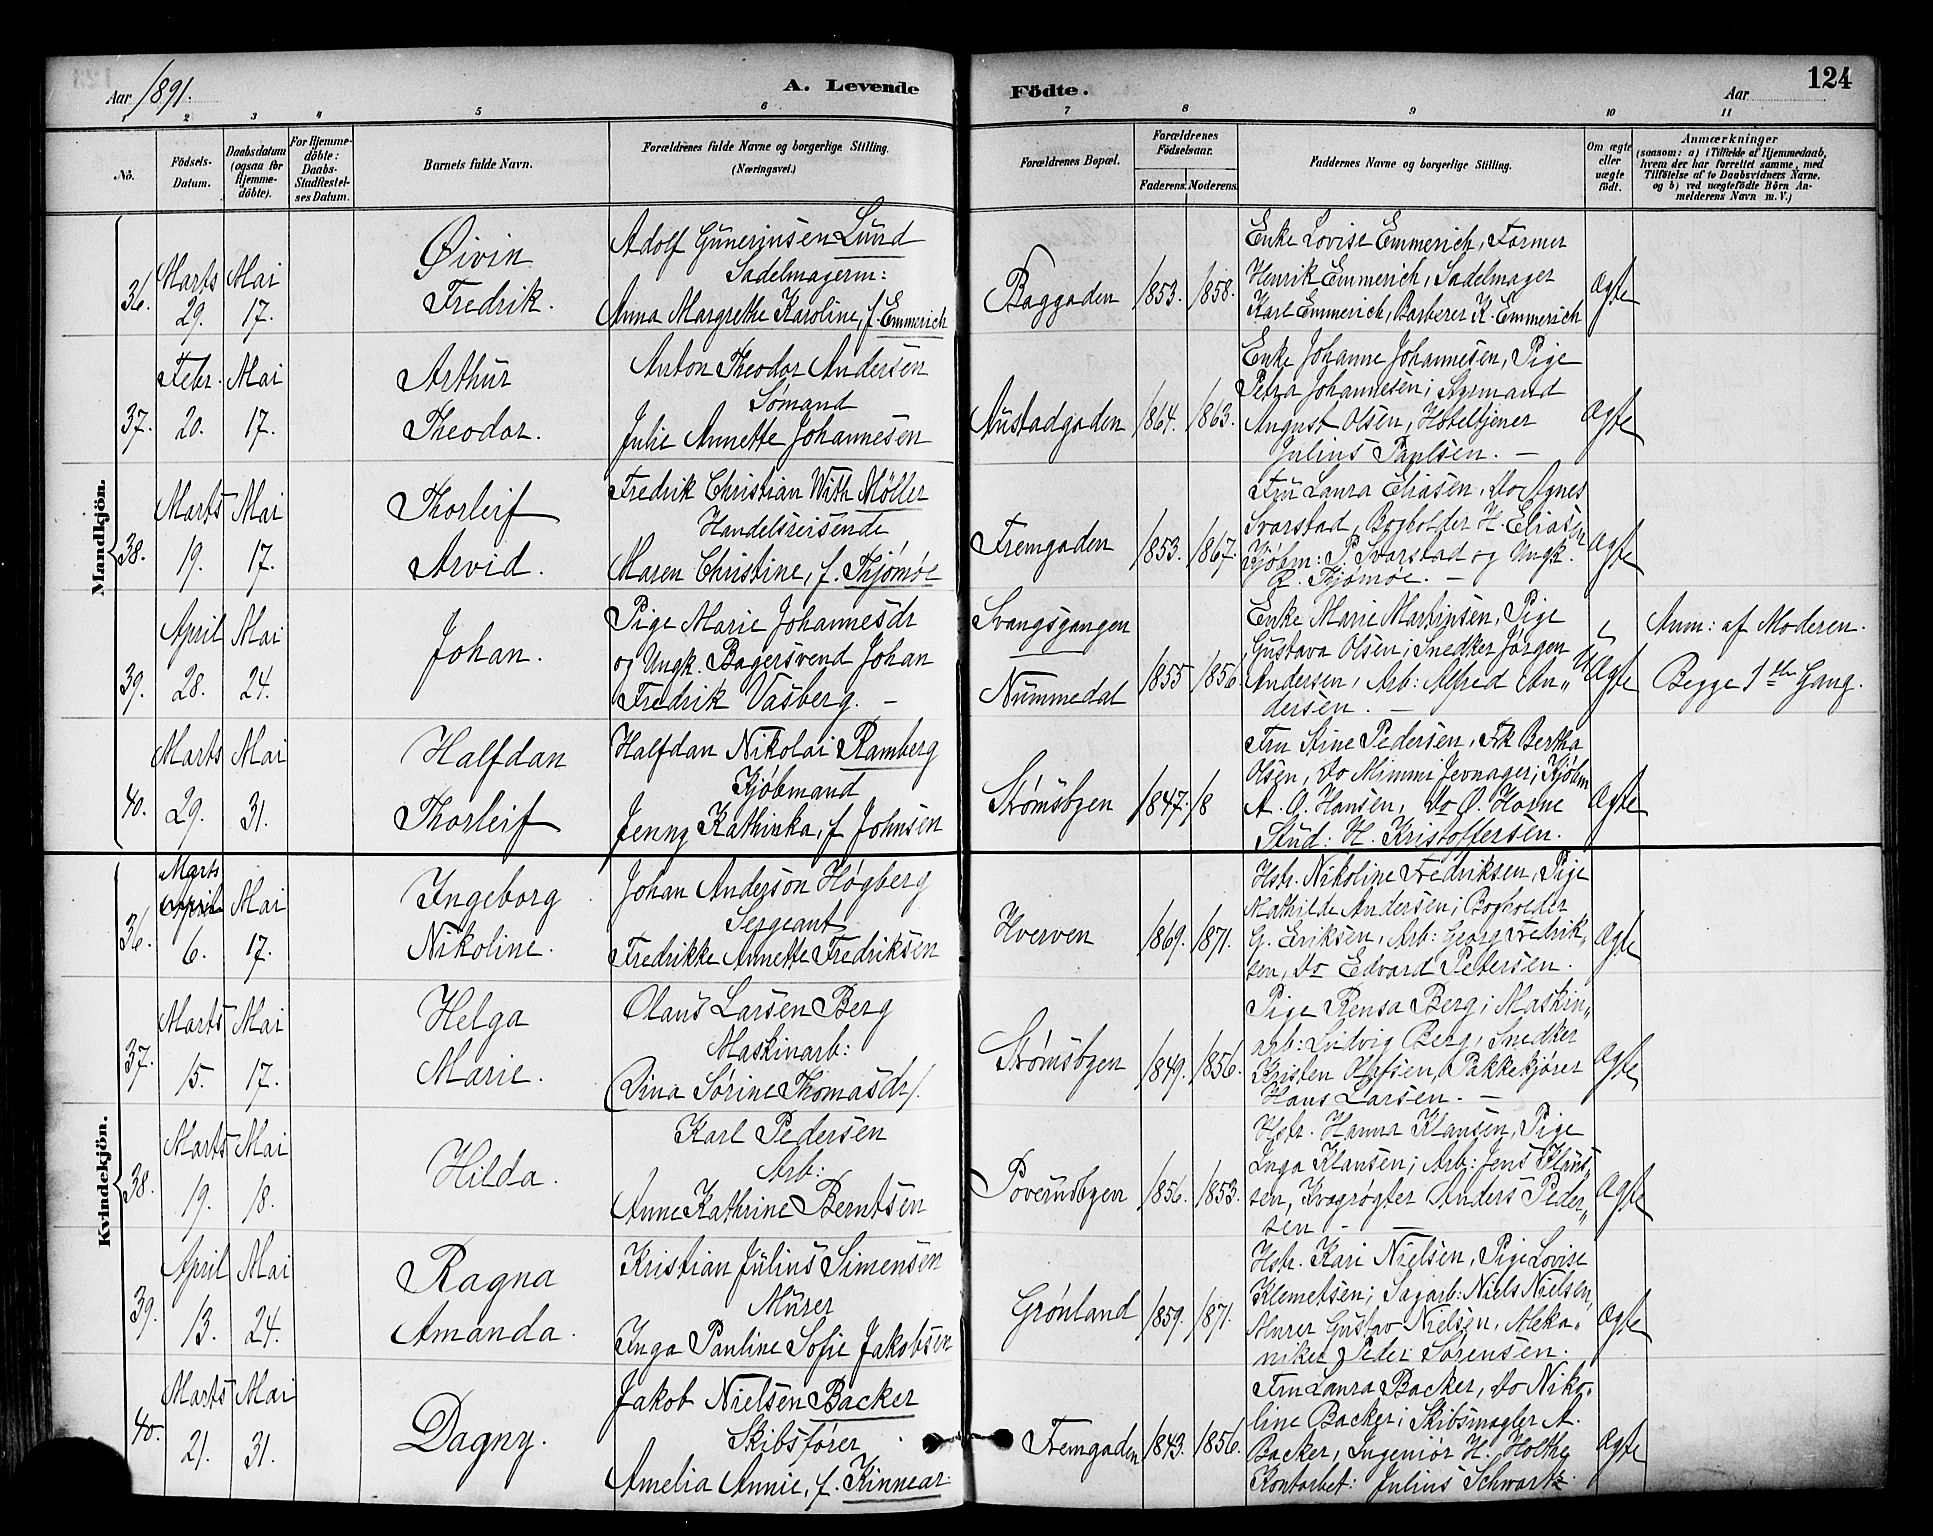 Aar 1891.
A. Levende Födte.
Aar
124
1 2 3 4 5 6 7 8 9 10 11
No.
Födsels-Datum.
Daabsdatum (ogsaa for Hjemme-döbte).
For Hjemme-döbte: Daabs-Stadfæstel-ses Datum.
Barnets fulde Navn.
Forældrenes fulde Navne og borgerlige Stilling. (Næringsvei.)
Forældrenes Bopæl.
Forældrenes Födselsaar.
Faderens. Moderens.
Faddernes Navne og borgerlige Stilling.
Om ægte eller uægte födt.
Anmærkninger
(saasom: a) i Tilfælde af Hjemmedaab,
hvem der har forrettet samme, med
Tilföielse af to Daabsvidners Navne.
og b) ved uægtefödte Börn An-
melderens Navn m. V.)
Mandkjön.
36.
Marts 29.
Mai 17.
Øivin
Fredrik.
Adolf Gunerinsen Lund
Sadelmagerm:
Anna Margrethe Karoline, f. Emmerich
Baggaden
1853.
1858.
Enke Lovise Emmerich, Former
Henrik Emmerich, Sadelmager
Karl Emmerich, Barberer K. Emmerich
Ægte
37.
Febr. 20.
Mai 17.
Arthur
Theodor.
Anton Theodor Andersen
Sømand
Julie Annette Johannesen
Austadgaden
1864.
1863.
Enke Johanne Johannesen, Pige
Petra Johannesen; Styrmand
August Olsen, Hoteltjener
Julius Paulsen. —
Ægte
38.
Marts 19.
Mai 17.
Thorleif
Arvid.
Fredrik Christian With Møller
Handelsreisende
Maren Christine, f. Thjømøe
Fremgaden
1853.
1867.
Fru Laura Eliasen, Do Agnes
Svarstad, Bogholder H. Eliasen
Kjøbm: P. Svarstad og Ungk.
R. Tjømøe. —
Ægte
39.
April 28.
Mai 24.
Johan.
Pige Marie Johannesdr
og Ungk. Bagersvend Johan
Fredrik Vasberg. —
Svangsgangen
Nummedal
1855
1856.
Enke Marie Martinsen, Pige
Gustava Olsen; Snedker Jørgen
Andersen, Arb: Alfred An„
dersen. —
UÆgte
Anm: af Moderen.
Begge 1ste Gang.
40.
Marts 29.
Mai 31.
Halfdan
Thorleif
Halfdan Nikolai Ramberg
Kjøbmand
Jenny Kathinka, f. Johnsen
Strømsbyen
1847.
18
Fru Stine Pedersen, Frk Bertha
Olsen, Do Mimmi Jevnager; Kjøbm
A. O. Hansen, Do Ø. Hovne
Stud: H. Kristoffersen.
Ægte
Kvindekjön.
36.
Marts
April 6.
Mai 17.
Ingeborg
Nikoline.
Johan Anderson Høgberg
Sergeant
Fredrikke Annette Fredriksen
Hverven
1869.
1871.
Hstr. Nikoline Fredriksen, Pige
Mathilde Andersen; Bogholder
G. Eriksen, Arb: Georg Fredrik„
sen, Do Edvard Petersen.
Ægte
37.
Marts 15.
Mai 17.
Helga
Marie.
Olaus Larsen Berg
Maskinarb:
(Dina Sørine Thomasdr).
Strømsbyen
1849.
1856.
Pige Rensa Berg; Maskin„
arb: Ludvig Berg, Snedker
Kristen Olafsen, Pakkekjører
Hans Larsen. —
Ægte
38.
Marts 19.
Mai 18.
Hilda.
Karl Pedersen
Arb:
Anne Kathrine Berntsen
Poverudbyen
1856.
1853.
Hstr. Hanna Klausen, Pige
Inga Klausen; Arb: Jens Klaus„
sen, Kvægrøgter Anders Peder„
sen —
Ægte
39.
April 13.
Mai 24.
Ragna
Amanda.
Kristian Julius Simensen
Murer
Inga Pauline Sofie Jakobsen
Grønland
1859.
1871.
Hstr. Kari Nielsen, Pige Lovise
Klemetsen; Sagarb: Niels Nielsen,
Murer Gustav Nielsen, Meka„
niker Peder Sørensen.
Ægte
40.
Marts 21.
Mai 31.
Dagny.
Jakob Nielsen Backer
Skibsfører
Amelia Annie, f. Kinnear.
Fremgaden
1843.
1856.
Fru Laura Backer, Do Niko„
line Backer; Skibsmægler A.
Backer, Ingeniør H. Holthe
Kontorbet: Julius Schwartz.
Ægte